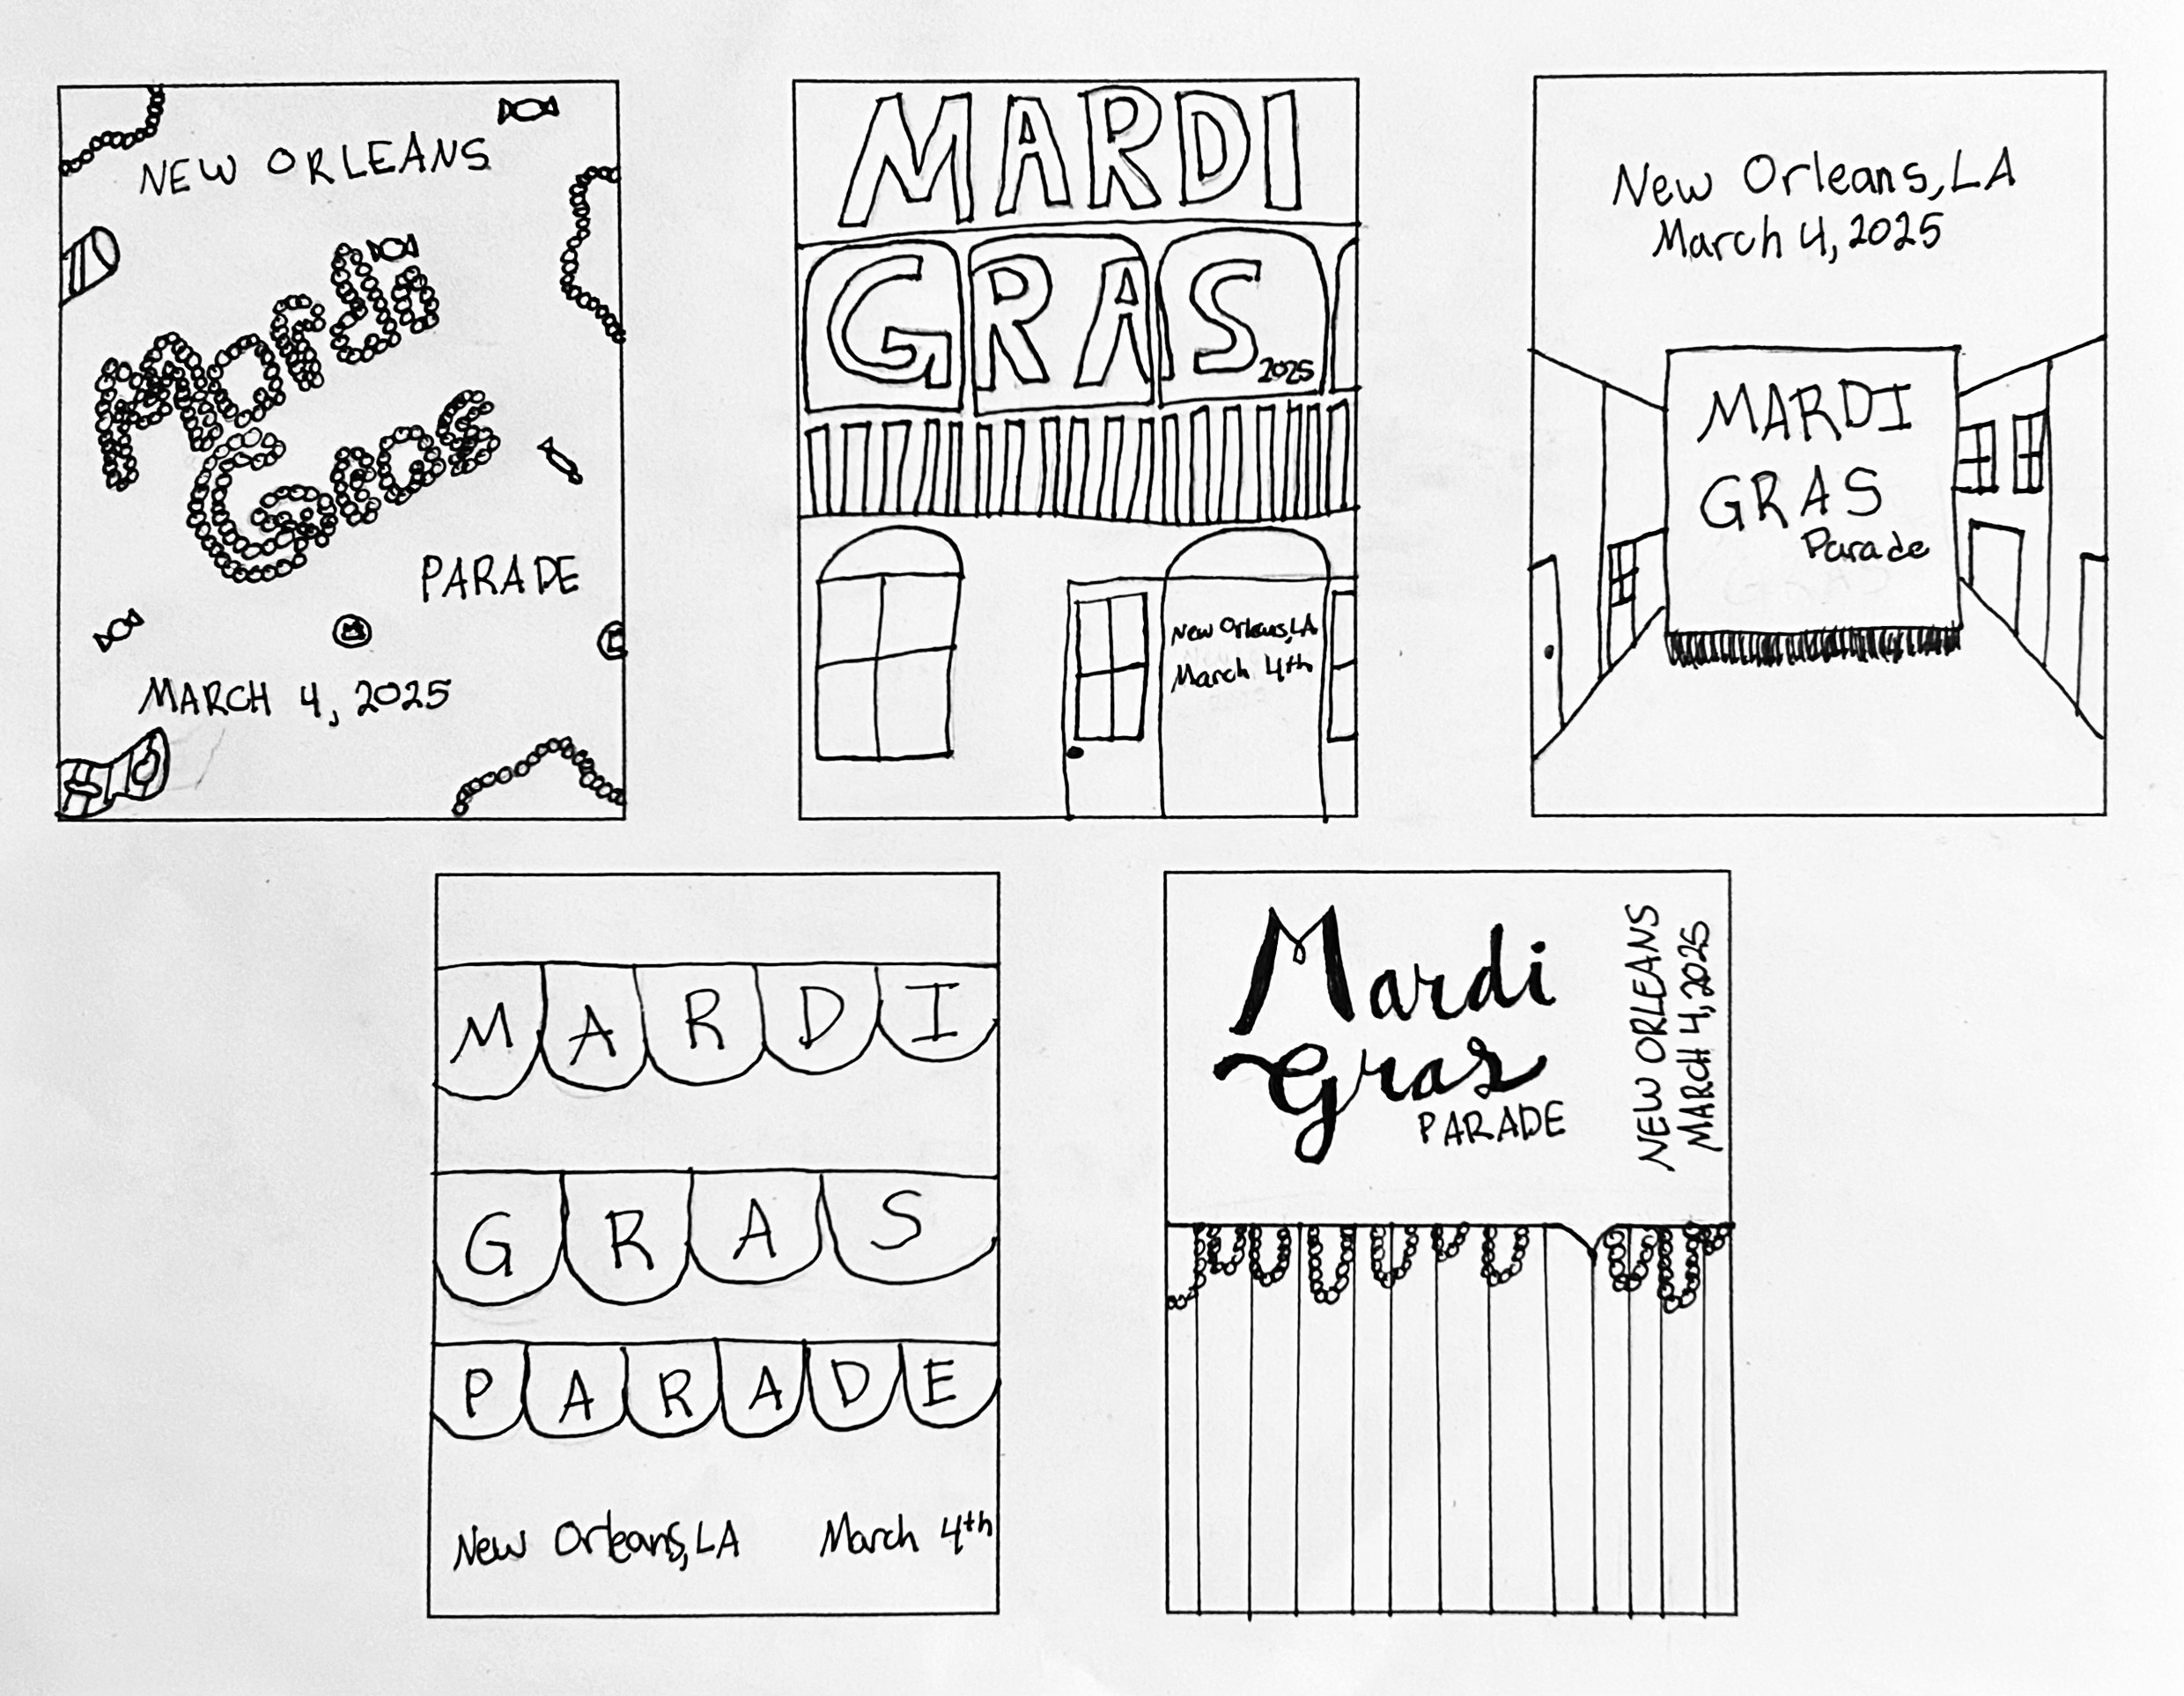 NEW ORLEANS
Mardi
Gras
PARADE
MARCH 4, 2025
MARDI
GRAS
2025
New Orleans, LA
March 4th
New Orleans, LA
March 4, 2025
MARDI
GRAS
Parade
MARDI
GRAS
PARADE
New Orleans, LA March 4th
Mardi
Gras
PARADE
NEW ORLEANS
MARCH 4, 2025